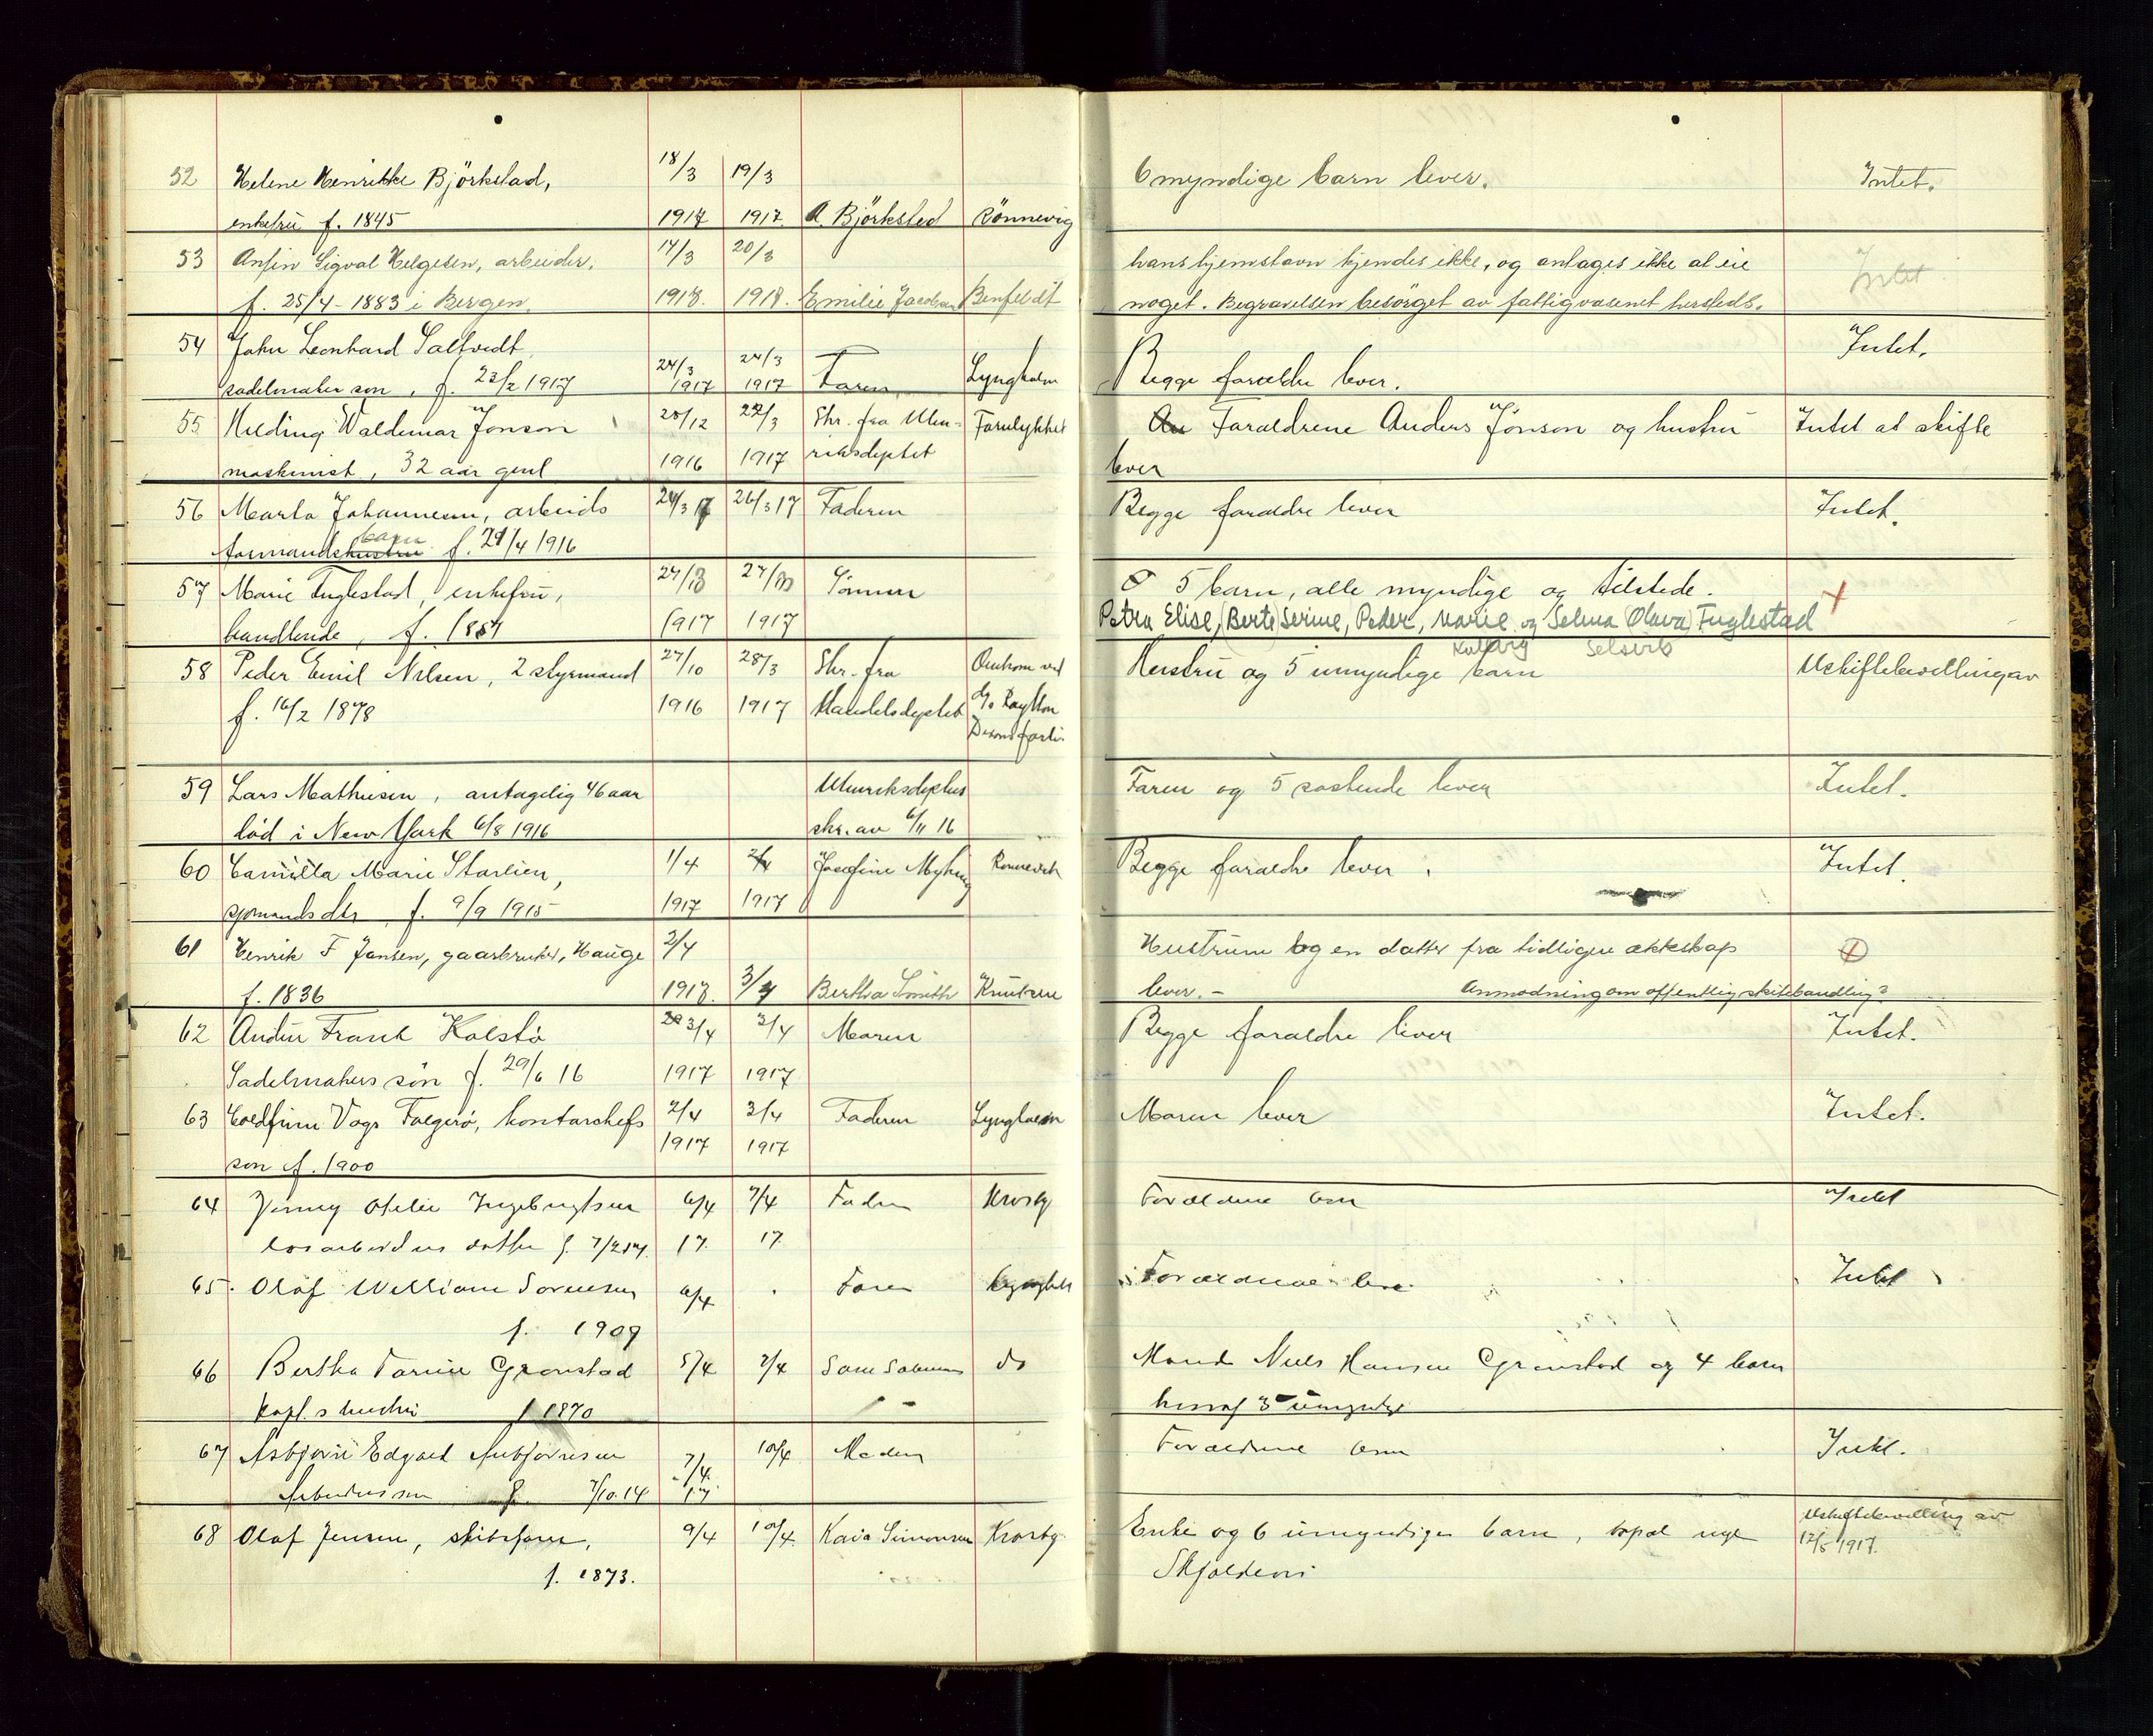 52 Helene Henrikke Björkstad, 18/3 19/3 6 myndige barn lever. Intet.
enkefru f. 1845 1917 1917. A. Björksted Rönnevig
53 Ansin Sigval Helgesen, arbeider, 17/3 20/3 hans hjemstavn kjendes ikke, og antages ikke at eie Intet
f. 25/4 - 1883 i Bergen. 1917. 1917. Emilie Jacobsen Benfeldt noget. Begravelsen besörget av fattigvæsenet hersteds.
54 John Leonhard Saltvedt Intet.
sadelmaker søn, f. 23/2 1917 24/3 1917 24/3 1917 Faren Lyngholm Begge forældre lever.
55 Hilding Waldemar Jonson 28/12 22/3 Skr. fra Uten- Farulykket Forældrene Anders Jönson og hustru Intet at skifte
maskinist, 32 aar gml 1916 1917 riksdeptet lever
56 Marta Johannesen, arbeids 24/3 17 26/3 17 Faderen Begge forældre lever Intet.
barn
formandshustru f. 29/4 1916
57 Marie Fuglestad, enkefru, 27/3 27/3 Sønnen 5 barn, alle myndige og tilstede.
handlende, f. 1857 1917 1917 Petra Elise, (Berte) Serine, Peder, Marie og Selma (Olava) Fuglestad
58 Peder Emil Nilsen, 2 styrmand 27/10 28/3 Skr. fra Omkom ved Hustru og 5 umyndige barn Uskiftebevilling av
f. 16/2 1878 1916 1917 Handelsdeptet
59 Lars Mathiesen, antagelig 46 aar Utenriksdeptets Faren og 5 søskende lever Intet.
död i New York 6/8 1916 skr. av 6/11 16
60 Camilla Marie Starlien, 1/4 2/4 Josefine Myhre Rønnevik Begge forældre lever. Intet.
sjomands dtr f. 9/9 1915 1917 1917
61 Henrik F Jansen, gaarbruker, Hauge 2/4 Hustruen og en datter fra tidligere ekteskap
f. 1836 1917. 3/4 Bertha Smith Knutsen lever. - Anmodning om offentlig skiftebandling?
62 Andín Frank Kolstø 3/4 3/4 Moren Begge forældre lever Intet.
Sadelmakers søn f. 29/6 16 1917 1917
63 Goldfinn Vogs Falgerø, kontorchefs 2/4 3/4 Faderen Lyngholm Moren lever Intet.
søn f. 1900 1917 1917
64 Jenny Otelie Ingebrigtsen 6/4 7/4 Fader Krosby Forældrene lever Intet
losarbeiders datter f. 7/2 17. 17. 17
65. Olaf William Sorensen 6/4 Faren Lyngholm Forældrene lever Intet
f. 1909
66 Bertha Tarine Grønstad 5/4 7/4 do Mand Niels Hansen Grønstad og 4 barn
kapt.s hustru f 1870 heraf 3 umyndige
67 Asbjørn Edgard Asbjørnsen 7/4 10/4 Moderen Forældrene lever Intet.
Arbeiders søn f. 7/10.14 17
68 Olaf Jensen, skibsfører, 9/4 10/4 Kaia Simonsen Krosby Enke og 6 umyndige barn, Uskiftebevilling av
f. 1873. Skjoldevei 12/5 1917.